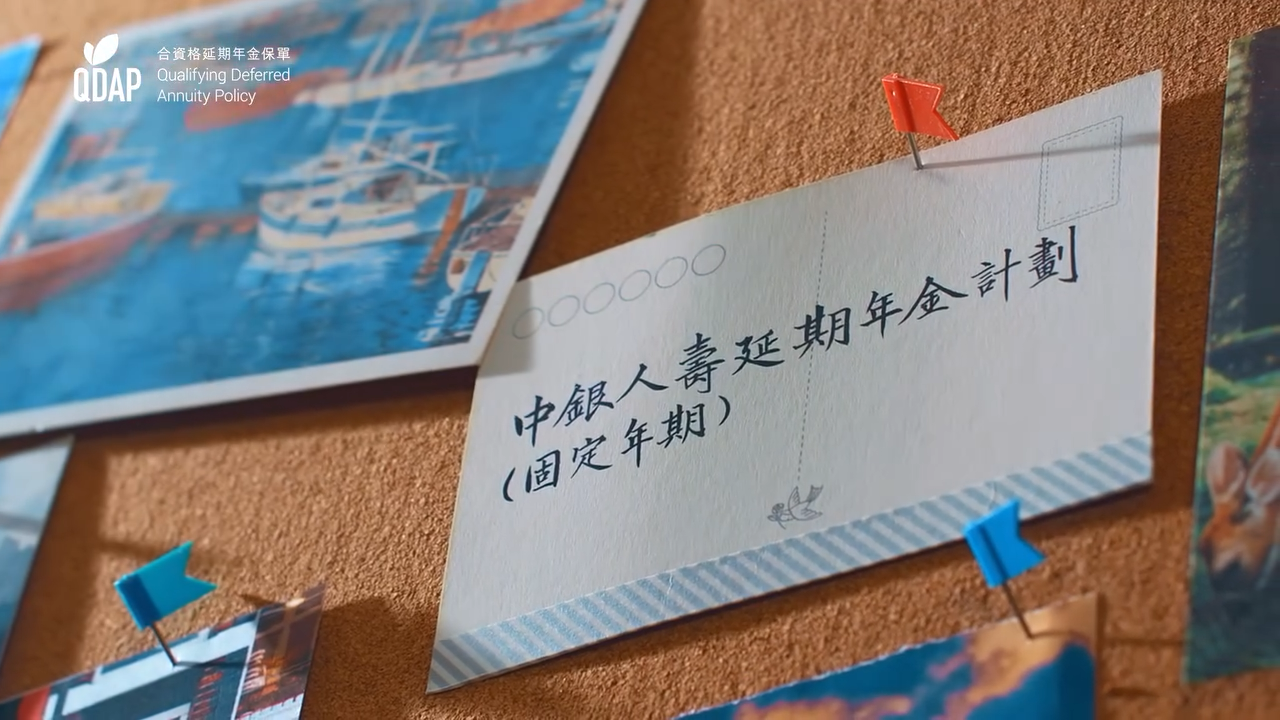 QDAP
合資格延期年金保單
Qualifying Deferred
Annuity Policy
中銀人壽延期年金計劃
(固定年期)